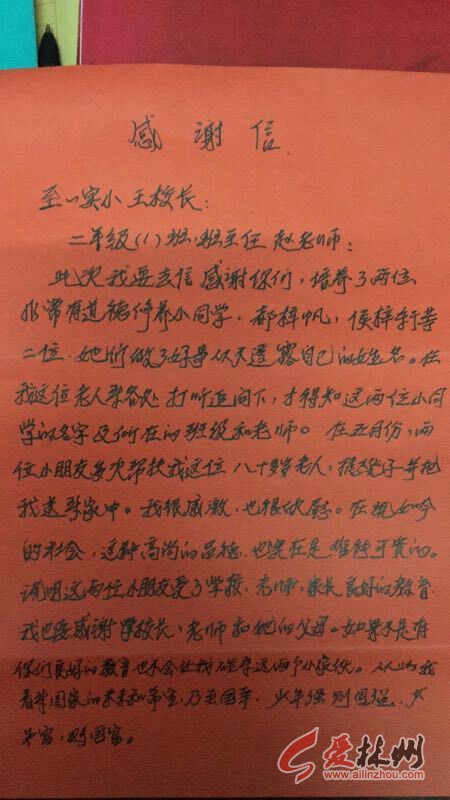 感谢信
至:实小王校长:
二年级(1)班,班主任 赵老师:
此次我要去信感谢你们,培养了两位
非常有道德修养小同学,郝梓帆,侯梓轩等
二位.她们做了好事从不透露自己的姓名。在
我这位老人来各处打听追问下,才得知这两位小同
学的名字及所在的班级和老师。在五月份,两
位小朋友多次帮扶我这位八十岁老人,提凳子并把
我送到家中。我很感激,也很欣慰。在现如今
的社会,这种高尚的品德,也实在是难能可贵的。
说明这两位小朋友受了学校,老师,家长良好的教育.
我也要感谢学校长,老师和她的父母。如果不是有
你们良好的教育也不会让我碰到这两个小家伙。从此我
看祖国家的未来和希望,乃至国华,少年强则国强,少
年富,则国富。
爱林州
www.ailinzhou.com